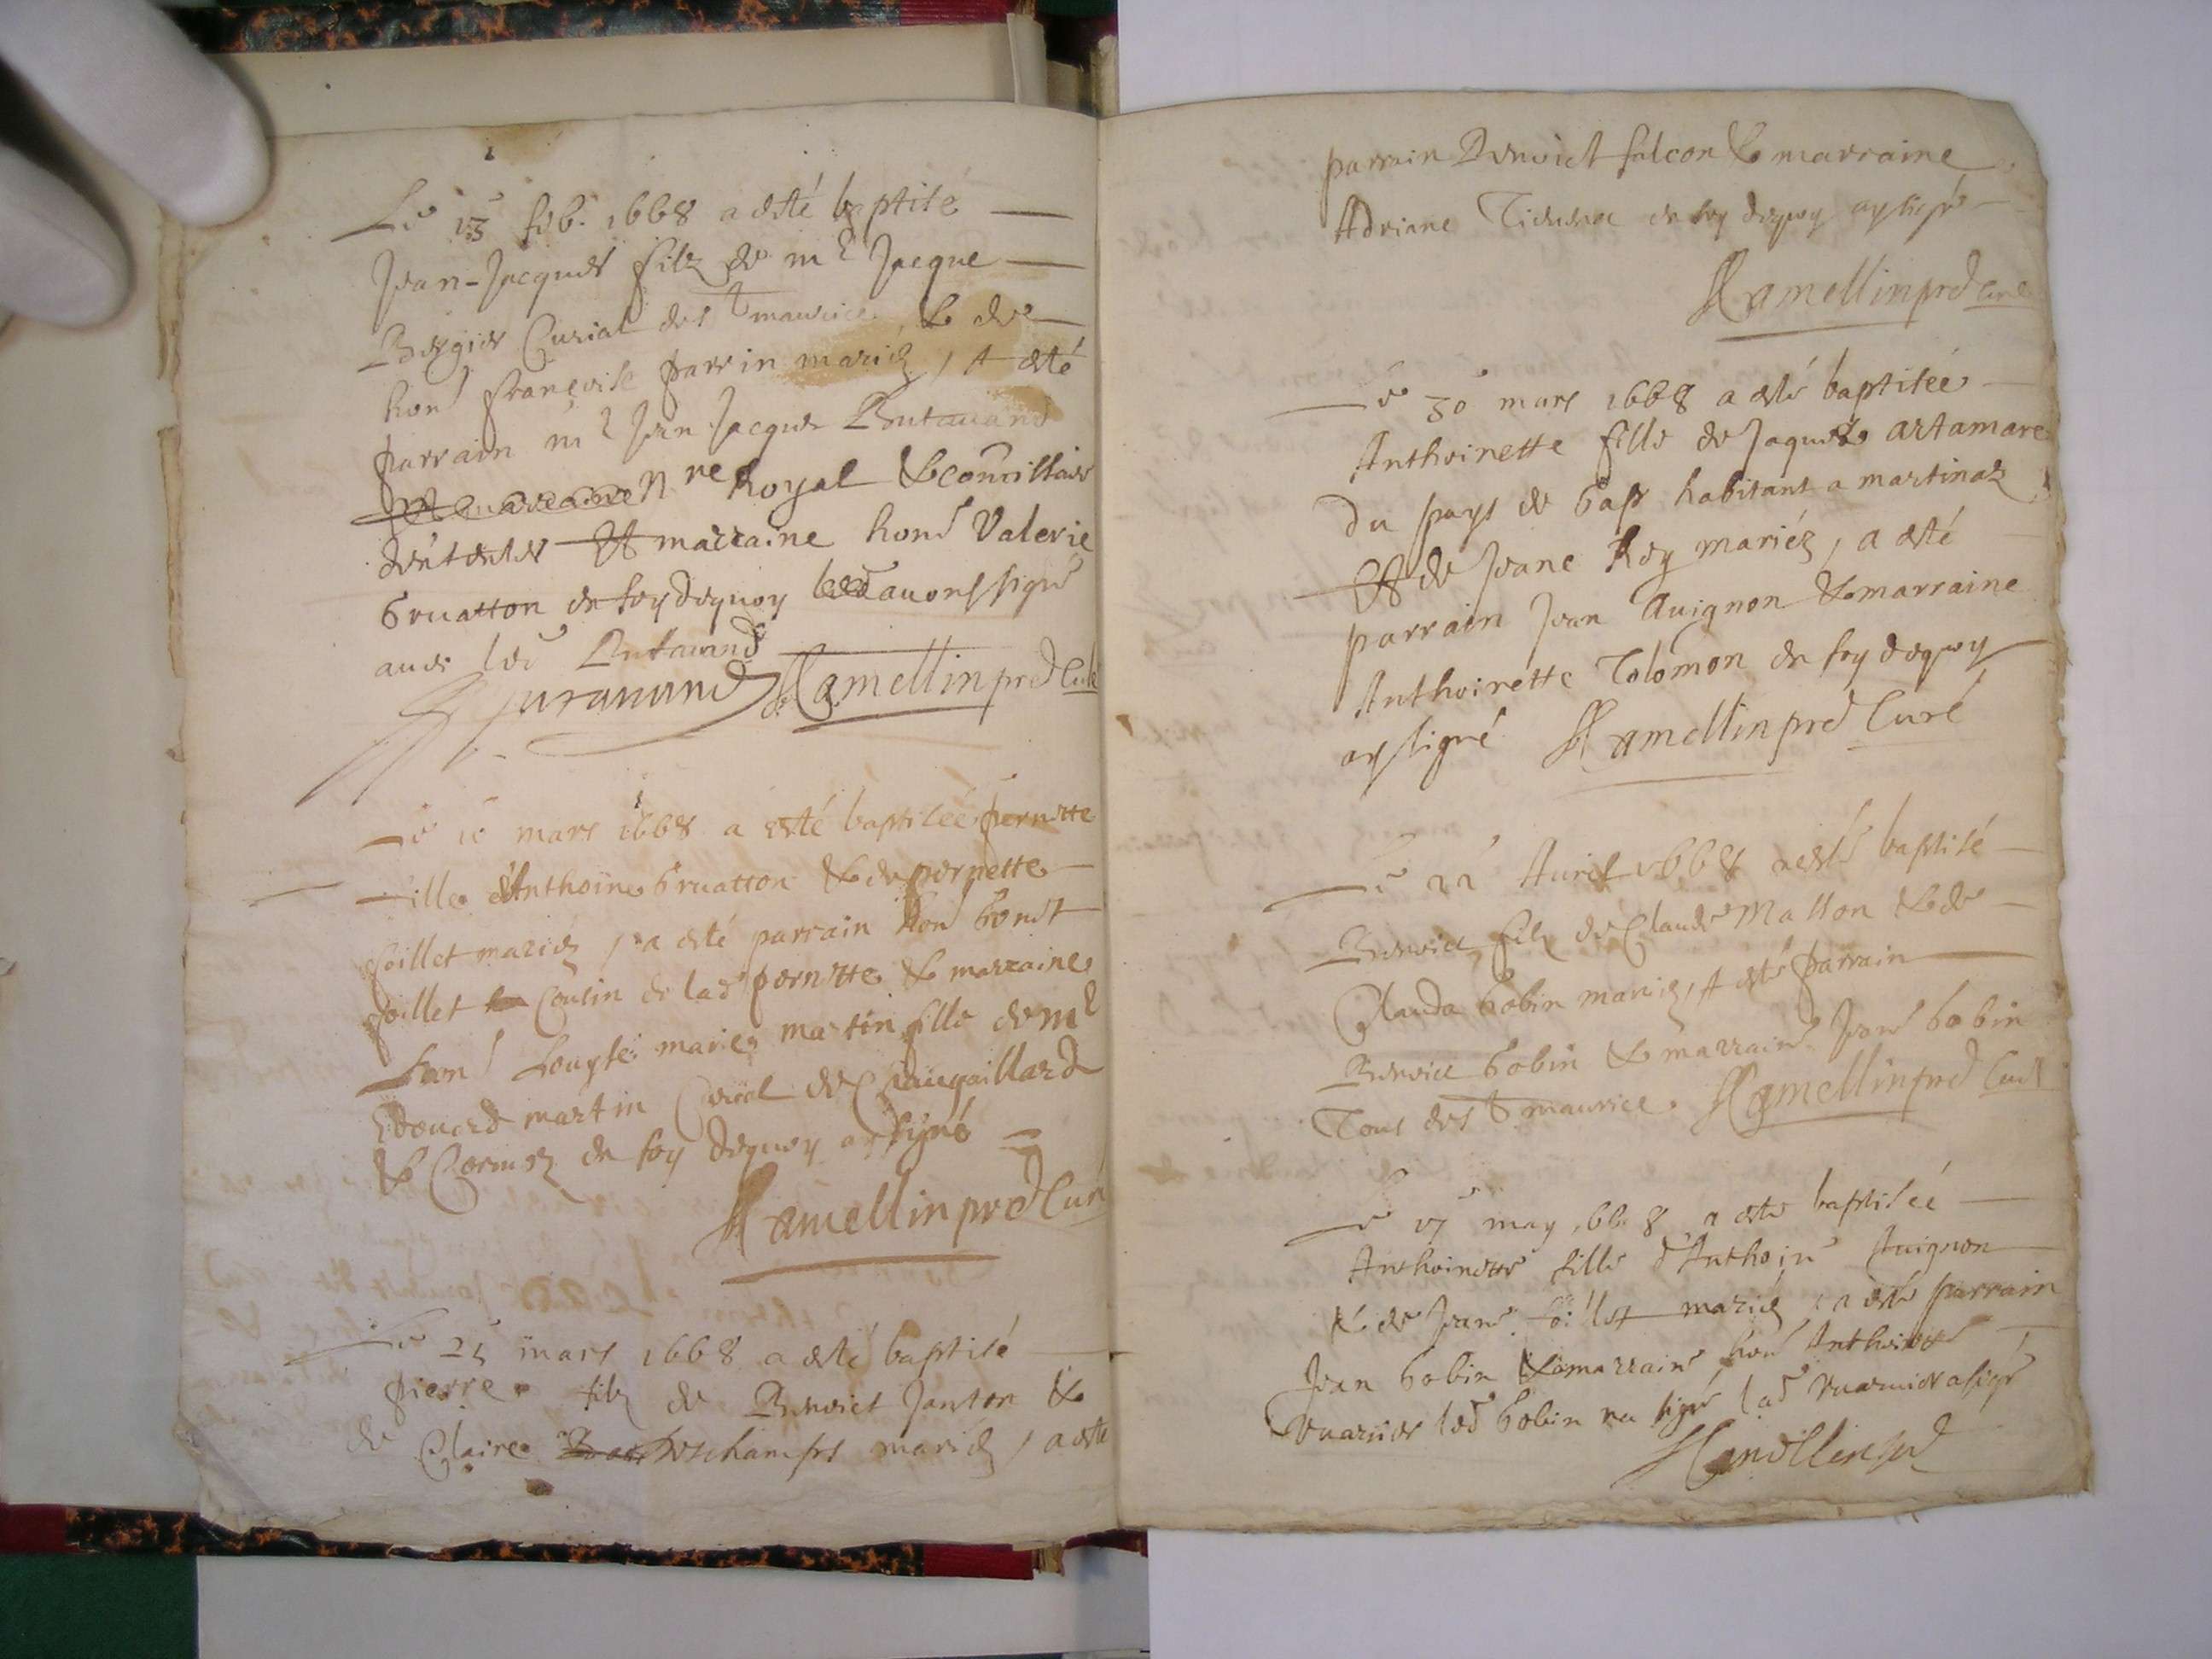 Le 13 feb. 1668 a esté baptisé
Jean-Jacques filz de me Jacque
Bergier Curial de st maurice, & de
hone françoise parrin mariéz, A esté
parrain me Jean Jacques Butavand
nre Royal &
Et marraine hone Valerie
Gruatton en foy dequoy avons signé
avec led Butavand
Hamellin pre Curé
Le 10 mars 1668 a esté baptiseé pernette
fille d'Anthoine Gruatton & de pernette
foillet mariéz, a esté parrain hon
foillet Cousin de lad pernette & marraine
hone Louyse marie martin fille de me
Edouard martin Curial de
& Cormoz en foy dequoy ay signé
Hamellin pre Curé
Le 25 mars 1668 a esté baptisé
pierre filz de Benoict Janton &
de Claire Deschamps mariéz, a esté
parrain Benoict falcon & marraine
Adriane en foy dequoy ay signé
Hamellin pre Curé
Le 30 mars 1668 a esté baptiseé
Anthoinette fille de Jaques artamare
Du pays de habitant a martinaz
Et de Jeane Rey mariéz, a esté
parrain Jean Avignon & marraine
Anthoinette Tolomon en foy dequoy
ay signé Hamellin pre Curé
Le 22 Avril 1668 a esté baptisé
Benoict filz de Claude Matton & de
Clauda Gobin mariéz, A esté parrain
Benoict Gobin & marraine Jeane Gobin
Tous de st maurice. Hamellin pre Curé
Le 17 may 1668 a este baptiseé
Anthoinette fille d'Anthoine Avignon
& de Jeane foillet mariéz, a esté parrain
Jean Gobin & marraine hone Anthoinette
led Gobin na signé lad a signé
Hamellin pre